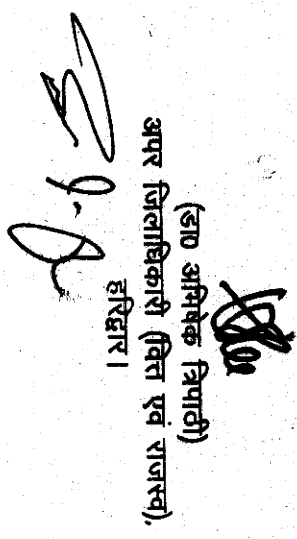 (डा० अभिषेक त्रिपाठी)
अपर जिलाधिकारी (वित्त एवं राजस्व),
हरिद्वार।